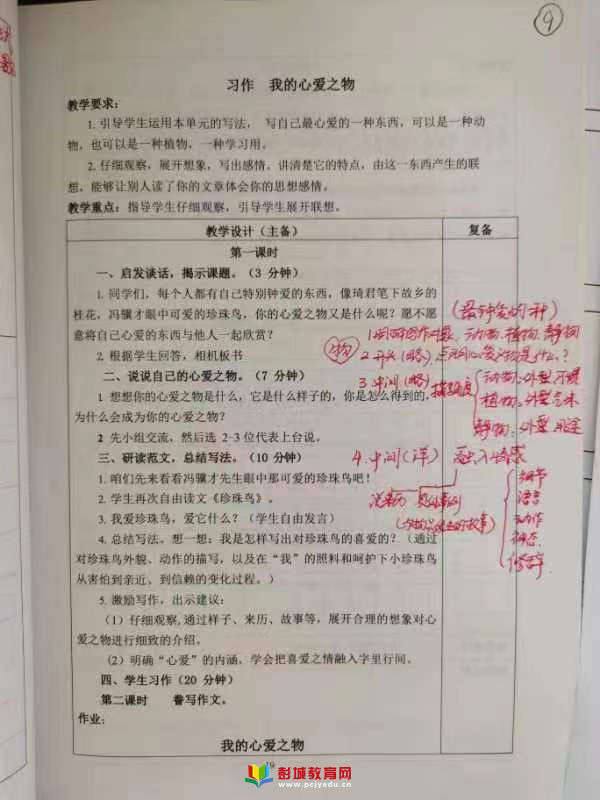 9
习作 我的心爱之物
教学要求：
1. 引导学生运用本单元的写法， 写自己最心爱的一种东西，可以是一种动
物，也可以是一种植物，一种学习用。
2. 仔细观察，展开想象，写出感情。讲清楚它的特点，由这一东西产生的联
想，能够让别人读了你的文章体会你的思想感情。
教学重点：指导学生仔细观察，引导学生展开联想。
教学设计（主备）
复备
第一课时
一、启发谈话，揭示课题。（3 分钟）
1. 同学们，每个人都有自己特别钟爱的东西，像琦君笔下故乡的
桂花，冯骥才眼中可爱的珍珠鸟，你的心爱之物又是什么呢？愿不愿
意将自己心爱的东西与他人一起欣赏？
2. 根据学生回答，相机板书
二、说说自己的心爱之物。（7 分钟）
1 想想你的心爱之物是什么，它是什么样子的，你是怎么得到的，
为什么会成为你的心爱之物？
2 先小组交流，然后选 2-3 位代表上台说。
三、研读范文，总结写法。（10 分钟）
1. 咱们先来看看冯骥才先生眼中那可爱的珍珠鸟吧！
2. 学生再次自由读文《珍珠鸟》。
3. 我爱珍珠鸟，爱它什么？（学生自由发言）
4. 总结写法，想一想：我是怎样写出对珍珠鸟的喜爱的？（通过
对珍珠鸟外貌、动作的描写，以及在“我”的照料和呵护下小珍珠鸟
从害怕到亲近、到信赖的变化过程。）
5. 激励写作，出示建议：
（1）仔细观察，通过样子、来历、故事等，展开合理的想象对心
爱之物进行细致的介绍。
（2）明确“心爱”的内涵，学会把喜爱之情融入字里行间。
四、学生习作（20 分钟）
第二课时 誊写作文。
作业：
我的心爱之物
（最钟爱的一种）
物
动物、植物、静物
2 开头（略）
是什么？
3 中间（略）
动物：外型 习惯
植物：外型 气味
静物：外型 用途
4. 中间（详） 融入情感
细节
语言
动作
神态
修辞
79
彭城教育网
www.pcjyedu.cn